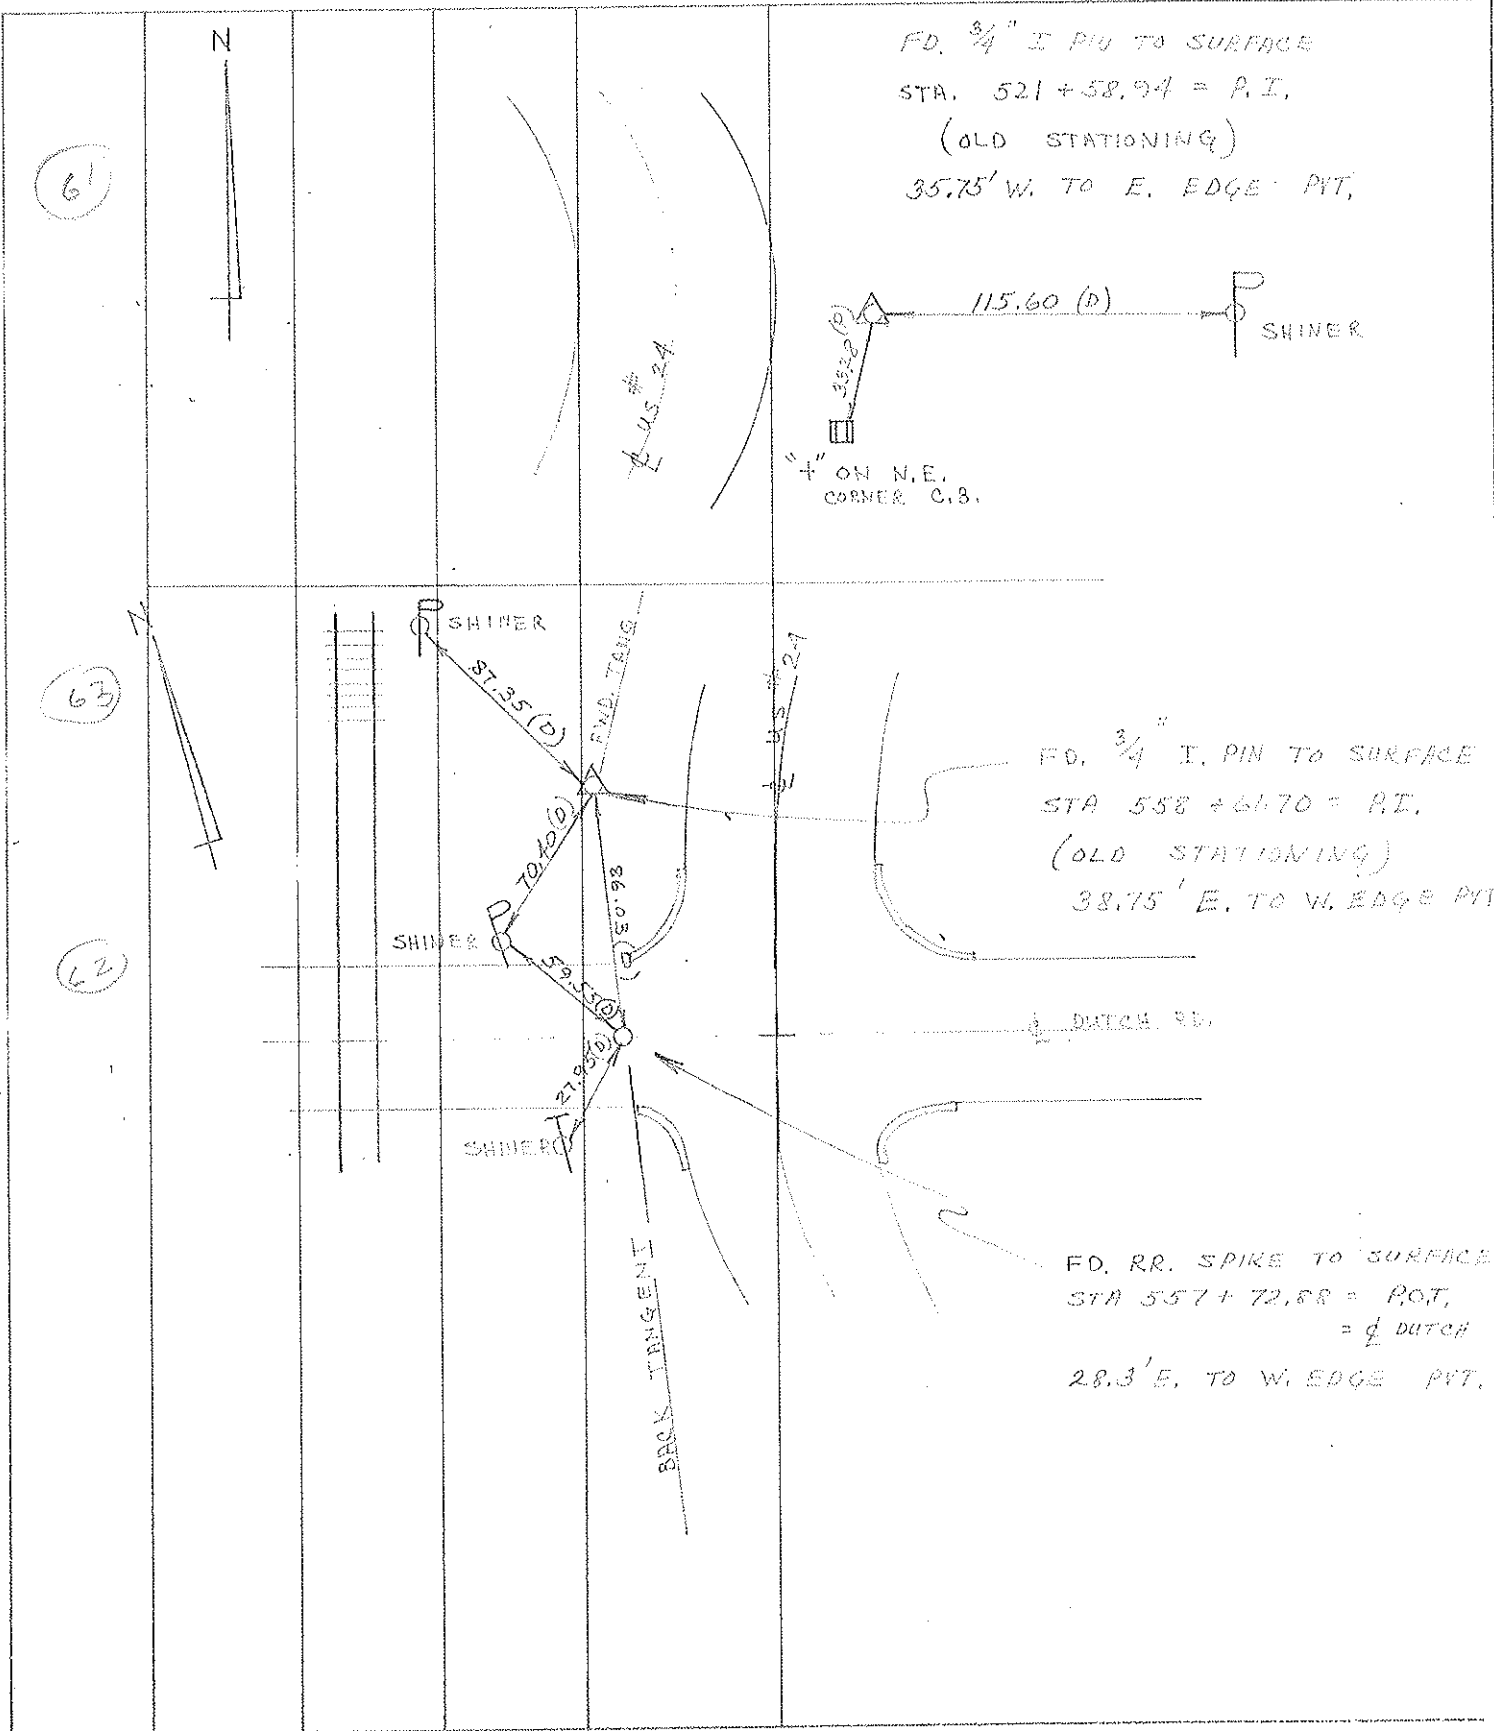 N
FD. 3/4" I PIN TO SURFACE
STA. 521+58.94 = P.I.
(OLD STATIONING)
35.75' W. TO E. EDGE PVT.
61
115.60 (D)
SHINER
℄ US # 24
"+" ON N.E.
CORNER C.B.
N
SHINER
87.35 (D)
FWD. TANG.
63
FD. 3/4" I. PIN TO SURFACE
STA 558+61.70 = P.I.
(OLD STATIONING)
38.75' E. TO W. EDGE PVT
70.40 (D)
86.03 (D)
SHINER
62
59.55 (D)
℄ DUTCH RD.
27.95 (D)
SHINER
BACK TANGENT
FD. RR. SPIKE TO SURFACE
STA 557+72.88 = P.O.T.
= ℄ DUTCH
28.3' E. TO W. EDGE PVT.